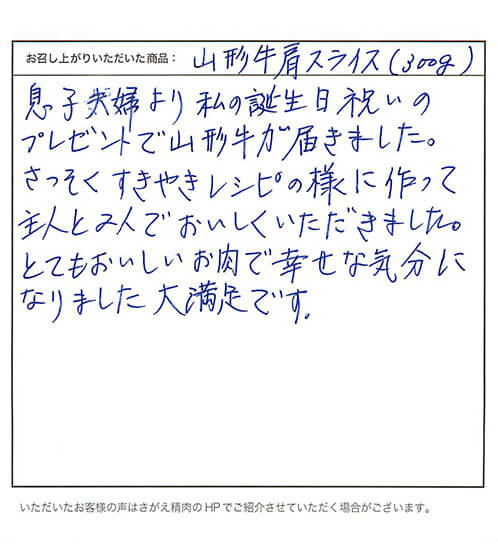 お召し上がりいただいた商品： 山形牛肩スライス(300g)
息子夫婦より私の誕生日祝いの
プレゼントで山形牛が届きました。
さっそくすきやきレシピの様に作って
主人と2人でおいしくいただきました。
とてもおいしいお肉で幸せな気分に
なりました大満足です。
いただいたお客様の声はさがえ精肉のHPでご紹介させていただく場合がございます。